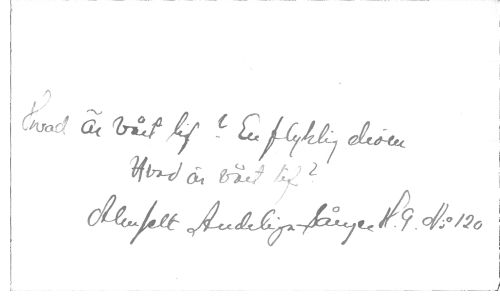 Hvad är vårt lif? En flyktig dröm
Hvad är vårt lif?
Ahnfelt Andeliga sånger H. 9. No 120